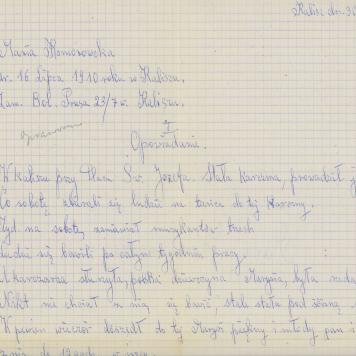 Kalisz dn. 30
Maria Komorowska
ur. 16 lipca 1910 roku w Kaliszu.
Zam. Bol. Prusa 23/7 w Kaliszu.
I
Opowiadanie.
W Kaliszu przy Placu Św. Józefa. Stała karczma, prowadził j
Co sobotę zbierali się ludzie na tańce do tej karczmy.
Żyd na sobotę zamawiał muzykantów trzech
ludzie się bawili po całym tygodniu pracy.
U karczmarza służyła, polska dziewczyna Marysia, była
Nikt nie chciał z nią się bawić, stale stała pod ścianą
W pewien wieczór wszedł do tej karczmy piękny i młody pan
w nocy